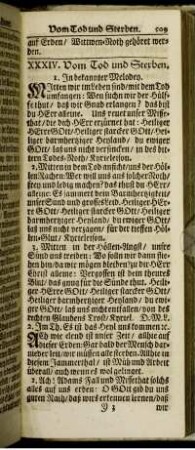 Vom Tod und Sterben. 509
auf Erden/ Wittwen-Noth gehöret wer-
den.
XXXIV. Vom Tod und Sterben.
1. In bekannter Melodey.
Mitten wir im Leben sind/ mit dem Tod
umfangen: Wen suchn wir der Hül-
fe thut/ daß wir Gnad erlangen? das bist
du HErr alleine. Uns reuet unser Misse-
that/ die dich HErr erzürnet hat: Heiliger
HErre GOtt/ Heiliger starcker GOtt/ Hei-
liger barmhertziger Heyland/ du ewiger
GOtt/ laß uns nicht versincken/ in des bit-
tern Todes-Noth/ Kyrieleison.
2. Mitten in dem Tod anficht/ uns der Höl-
len Rachen: Wer will uns aus solcher Noth/
frey und ledig machen? das thust du HErr
alleine: Es jammert dein Barmhertzigkeit/
unser Sünd und grosses Leid. Heiliger HEr-
re GOtt/ Heiliger starcker GOtt/ Heiliger
barmhertziger Heyland/ du ewiger GOtt/
laß uns nicht verzagen/ für der tieffen Höl-
len-Glut/ Kyrieleison.
3. Mitten in der Höllen-Angst/ unser
Sünd uns treiben: Wo solln wir dann flie-
hen hin/ da wir mögen bleiben? zu dir HErr
Christ alleine: Vergossen ist dein theures
Blut/ das gnug für die Sünde thut. Hei-
liger HErre GOtt/ Heiliger starcker GOtt/
Heiliger barmhertziger Heyland/ du ewi-
ger GOtt/ laß uns nicht entfallen/ von des
rechten Glaubens Trost/ Kyriel. D. M. L.
2. Im Th. Es ist das Heyl uns kommen ic.
Ach wie elend ist unser Zeit/ allhie auf
dieser Erden: Gar bald der Mensch dar-
nieder leit/ wir müssen alle sterben. Allhie in
diesem Jammerthal/ ist Müh und Arbeit
überall/ auch wenn es wol gelinget.
2. Ach! Adams Fall und Missethat/ solchs
alles auf uns erben: O GOtt gib du uns
guten Rath/ daß wirs erkennen lernen/ daß
wir